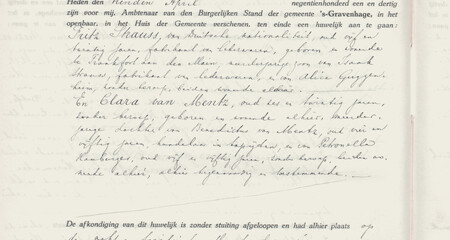 Heden den negentienhonderd een en dertig
zijn voor mij, Ambtenaar van den Burgerlijken Stand der gemeente 's-Gravenhage, in het
openbaar, in het Huis der Gemeente verschenen, ten einde een huwelijk aan te gaan:
Fritz Strauss, van Duitsche nationaliteit, oud vijf en
twintig jaren, fabrikant van lederwaren, geboren en wonende
te Frankfort aan den Main, meerderjarige zoon van Isaak
Strauss, fabrikant van lederwaren, en van Alice
heim, zonder beroep, beiden wonende aldaar.
En Clara van Mentz, oud zes en twintig jaren,
zonder beroep, geboren en wonende alhier, meerder-
jarige dochter van Benedictus van Mentz, oud
vijftig jaren, handelaar in tapijten, en van Petronella
Hamburger, oud vijf en vijftig jaren, zonder beroep, beiden wo-
nende alhier, alhier tegenwoordig en toestemmende.
De afkondiging van dit huwelijk is zonder stuiting afgeloopen en had alhier plaats op